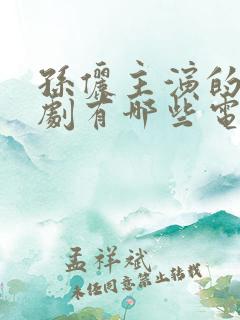 孫儷主演的
劇有哪些電
孟祥斌
未经同意禁止转载